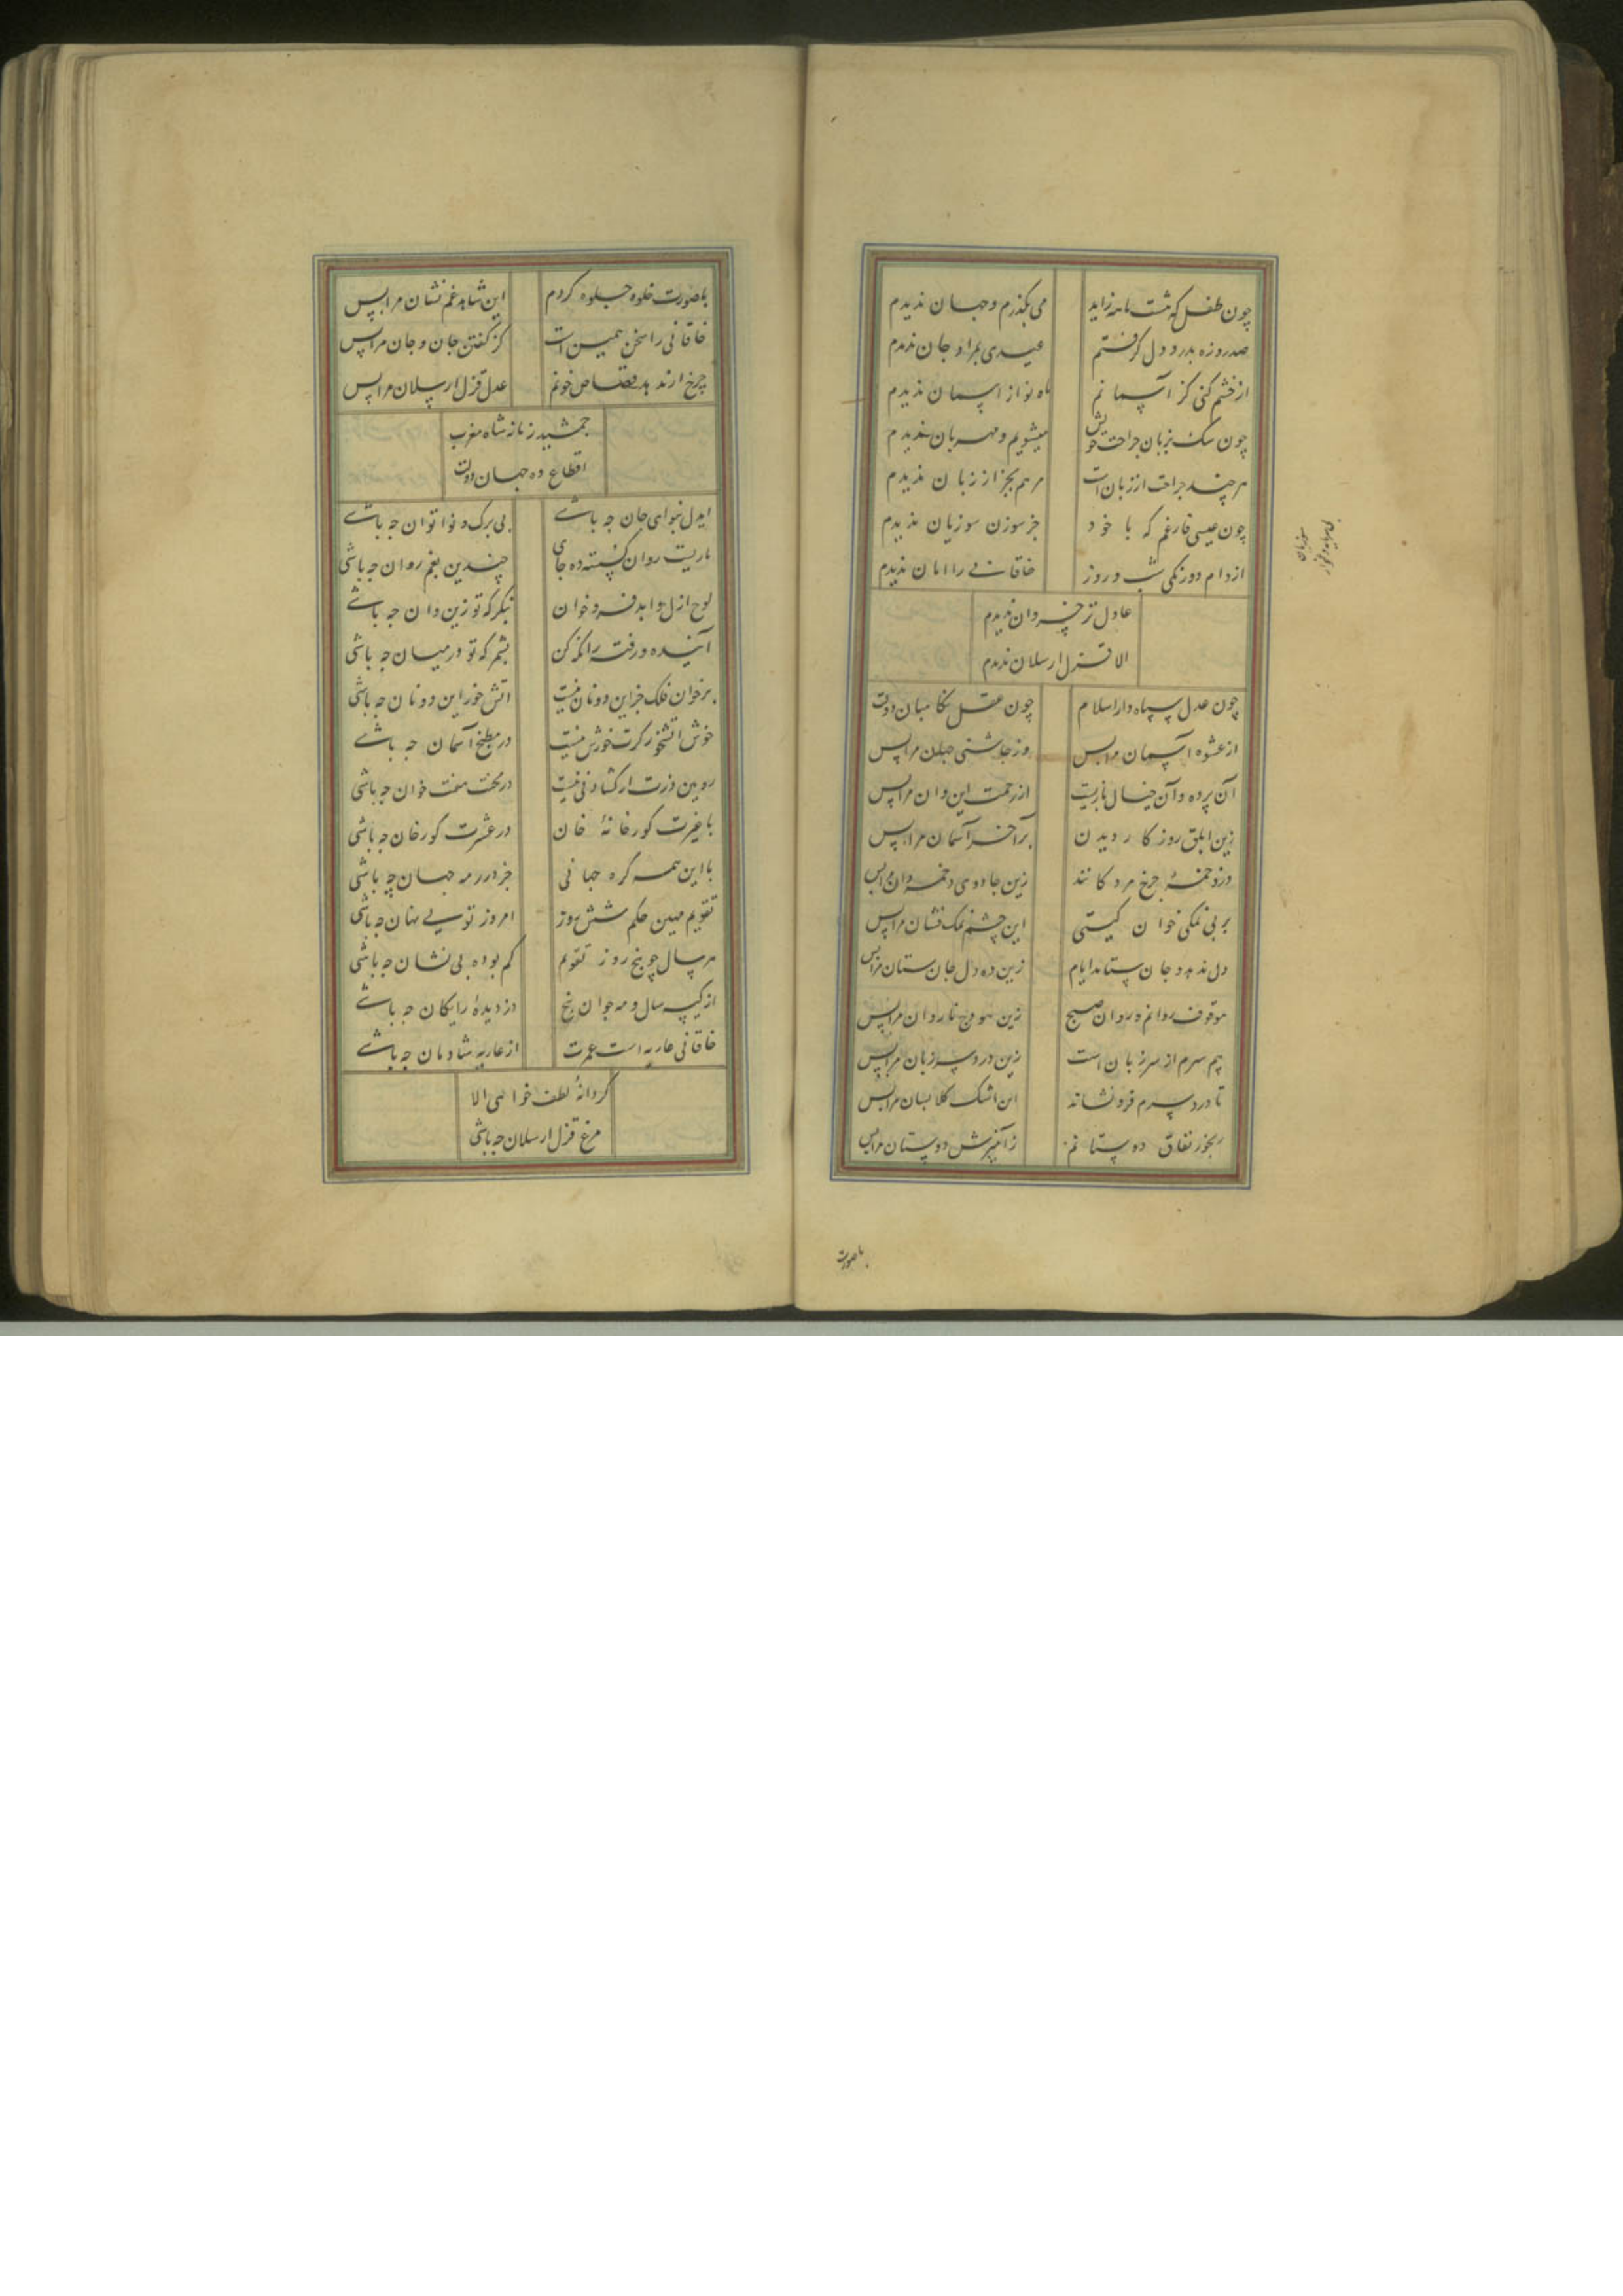 چون طفل که هشت ماهه زاید
می بگذرم و جهان ندیدم
صد روزه بدرد دل گرفتم
عیدی بمراد جان ندیدم
از خشم کنی کز آسمانم
ماه نو از اسمان ندیدم
چون سک بزبان جراحت خویش
میشویم و مهربان ندیدم
هرچند جراحت از زبان است
مرهم بجز از زبان ندیدم
چون عیسی فارغم که با خود
جز سوزن سوزیان ندیدم
از دام دورنکی شب و روز
خاقانی را امان ندیدم
عادل تر خسروان ندیدم
الا قزل ارسلان ندیدم
چون عدل سپاه دار اسلام
چون عقل نکاهبان دولت
از عشوه آسمان مرا بس
وز چاشنی جهان مرا بس
آن پرده و آن خیال بازیست
از زحمت این و آن مرا بس
زین ابلق روزکار دیدن
بر آخر آسمان مرا بس
دزد خمهٔ چرخ مردکانند
زین جادوی دخمه‌بان مرا بس
بر بی نمکی خوان کیتی
این چشم نمک فشان مرا بس
دل ندهد و جان ستاند ایام
زین ده دل جان ستان مرا بس
موقوف روانم و روان هیچ
زین هودج ناروان مرا بس
بیم سرم از سر زبان است
زین درد سر زبان مرا بس
تا درد سرم فرو نشاند
این اشک کلابسان مرا بس
رنجور نفاق دوستانم
ز آمیزش دوستان مرا بس
با صورت
با صورت خلوه جلوه کردم
این شاهد غم نشان مرا بس
خاقانی را سخن همین است
کز کفتن جان و جان مرا بس
چرخ ارندهد قصاص خونم
عدل قزل ارسلان مرا بس
جمشید زمانه شاه مغرب
اقطاع ده جهان دولت
ایدل بنوای جان چه باشی
بی برک و نوا توان چه باشی
ماریت روان کسسته ده جای
چندین بغم روان چه باشی
لوح ازل و ابد فرو خوان
بنکر که تو زین و آن چه باشی
آینده و رفته را نکه کن
بشمر که تو در میان چه باشی
بر خوان فلک جز این دو نان نیست
اتش خور این دو نان چه باشی
خوش اتشخور کرت خورش نیست
در مطبخ آسمان چه باشی
رویین دژت ار کشادنی نیست
در محنت هفت خوان چه باشی
با غیرت کور خانهٔ خان
در عشرت کورخان چه باشی
با این همه کره جهانی
جز در رمه جهان چه باشی
تقویم مهین حکم شش روز
امروز تویی نهان چه باشی
هر سال چو پنج روز تقویم
کم بوده بی نشان چه باشی
از کیسه سال و مه جوان پنج
دزدیدهٔ رایکان چه باشی
خاقانی عاریه است عمرت
از عاریه شادمان چه باشی
کر دانهٔ لطف خواهی الا
مرغ قزل ارسلان چه باشی